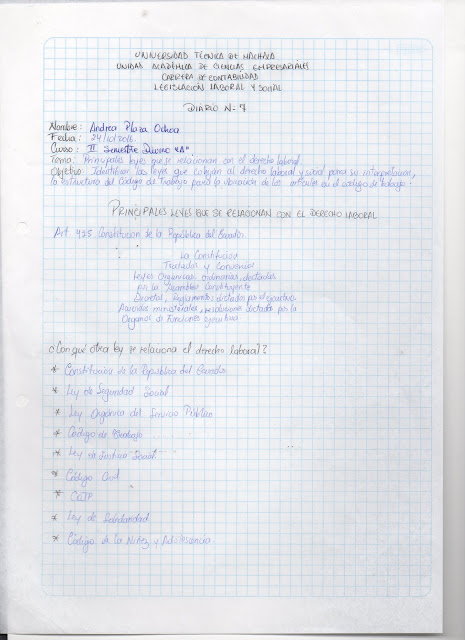 UNIVERSIDAD TÉCNICA DE MACHALA
UNIDAD ACADÉMICA DE CIENCIAS EMPRESARIALES
CARRERA DE CONTABILIDAD
LEGISLACIÓN LABORAL Y SOCIAL
DIARIO N- 7
Nombre: Andrea Plaza Ochoa
Fecha: 24/10/2016
Curso: II Semestre Diurno "A"
Tema: Principales leyes que se relacionan con el derecho laboral.
Objetivo: Identificar las leyes que el derecho laboral y social para su interpretación,
la estructura del Código de Trabajo para la ubicación de los artículos en el código de trabajo.
PRINCIPALES LEYES QUE SE RELACIONAN CON EL DERECHO LABORAL
Art 425 Constitución de la República del Ecuador.
La Constitución
Tratados y Convenios
Leyes Orgánicas, ordinarias, dictadas
por la Asamblea Constituyente
Decretos, Reglamentos dictados por el ejecutivo
Acuerdos ministeriales, resoluciones dictadas por la
Organos de Funciones ejecutiva
¿Con qué otra ley se relaciona el derecho laboral?
* Constitución de la República del Ecuador
* Ley de Seguridad Social
* Ley Orgánica del Servicio Público
* Código de Trabajo
* Ley de Justicia Social
* Código Civil
*
* Ley de Solidaridad
* Código de la Niñez y Adolescencia.